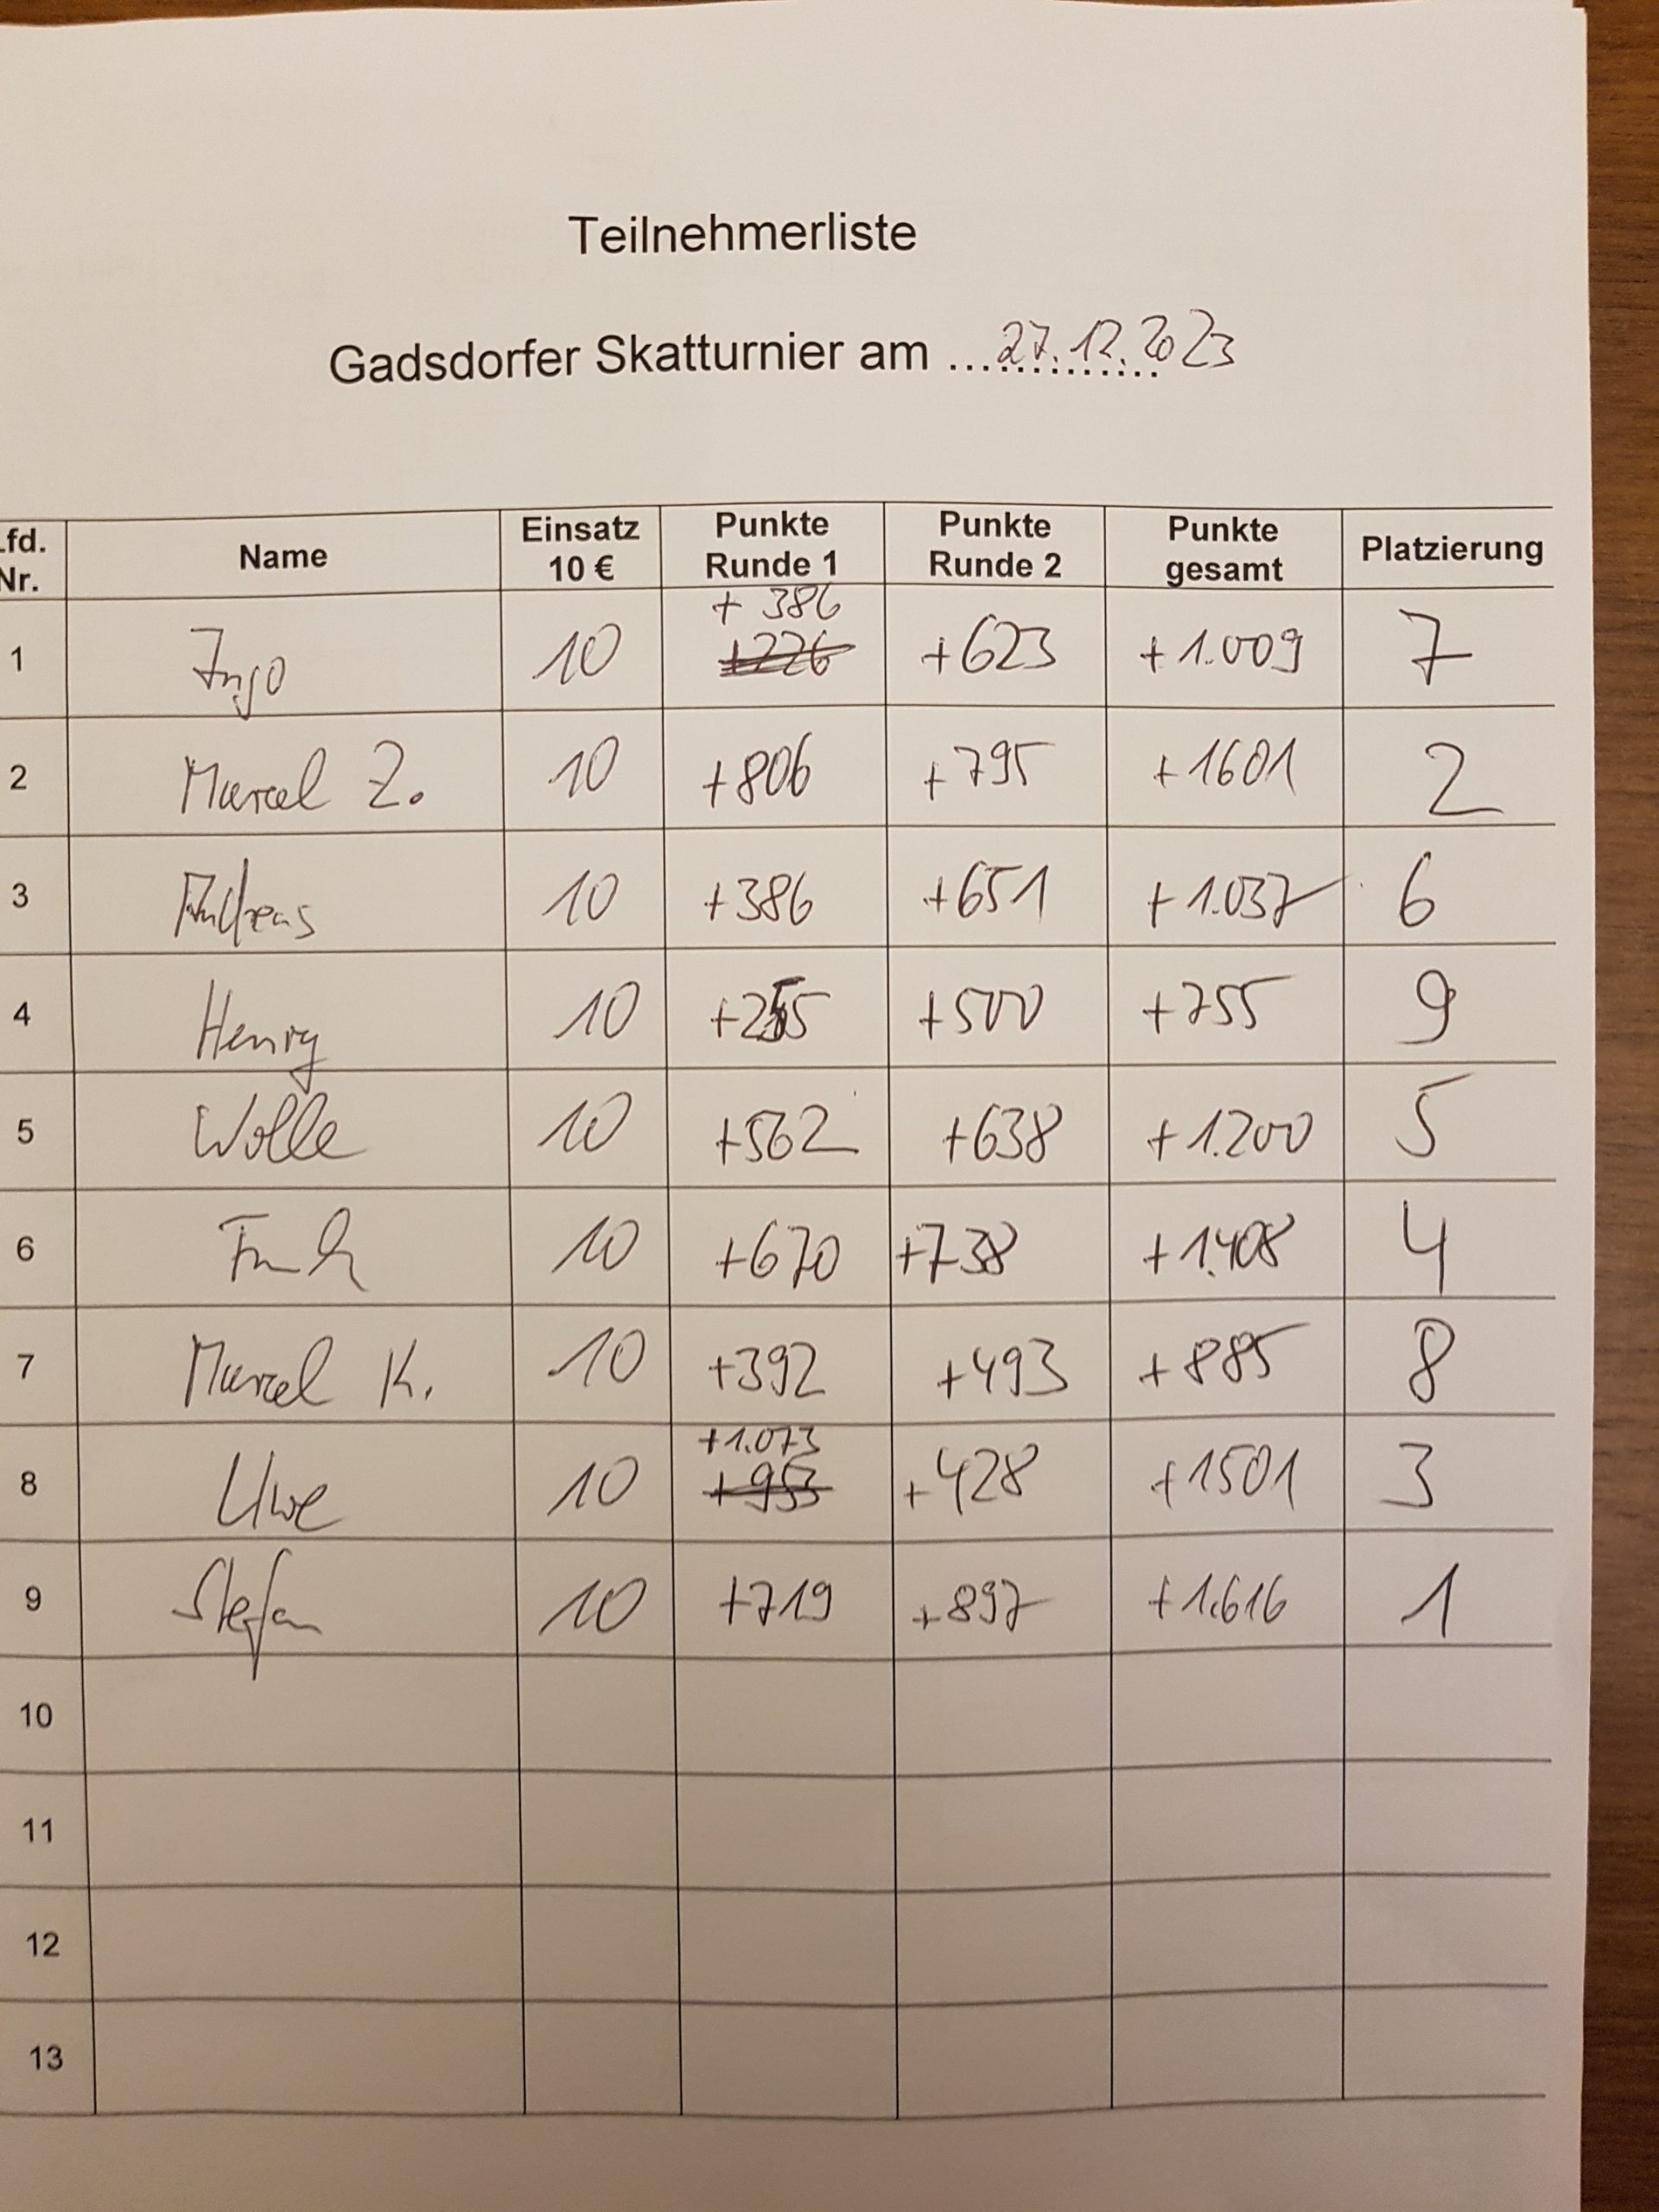 Teilnehmerliste
Gadsdorfer Skatturnier am ....27.12.2023
Lfd. Nr. Name Einsatz 10 € Punkte Runde 1 Punkte Runde 2 Punkte gesamt Platzierung
1 Ingo 10 +226 + 386 +623 +1.009 7
2 Marcel Z. 10 +806 +795 +1601 2
3 Andreas 10 +386 +651 +1.037 6
4 Henry 10 +255 +500 +755 9
5 Wolle 10 +562 +638 +1.200 5
6 Frank 10 +670 +738 +1.408 4
7 Marcel K. 10 +392 +493 +885 8
8 Uwe 10 +953 +1.073 +428 +1501 3
9 Stefan 10 +719 +897 +1.616 1
10
11
12
13